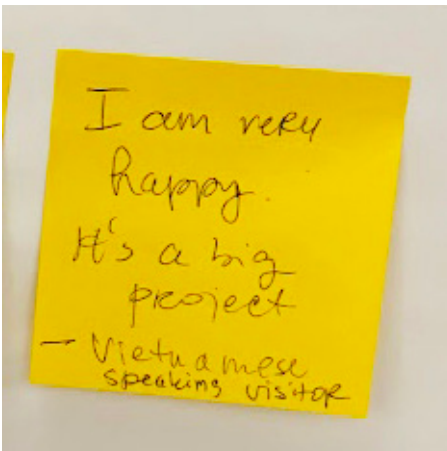 I am very
happy.
It's a big
project
- Vietnamese
speaking visitor